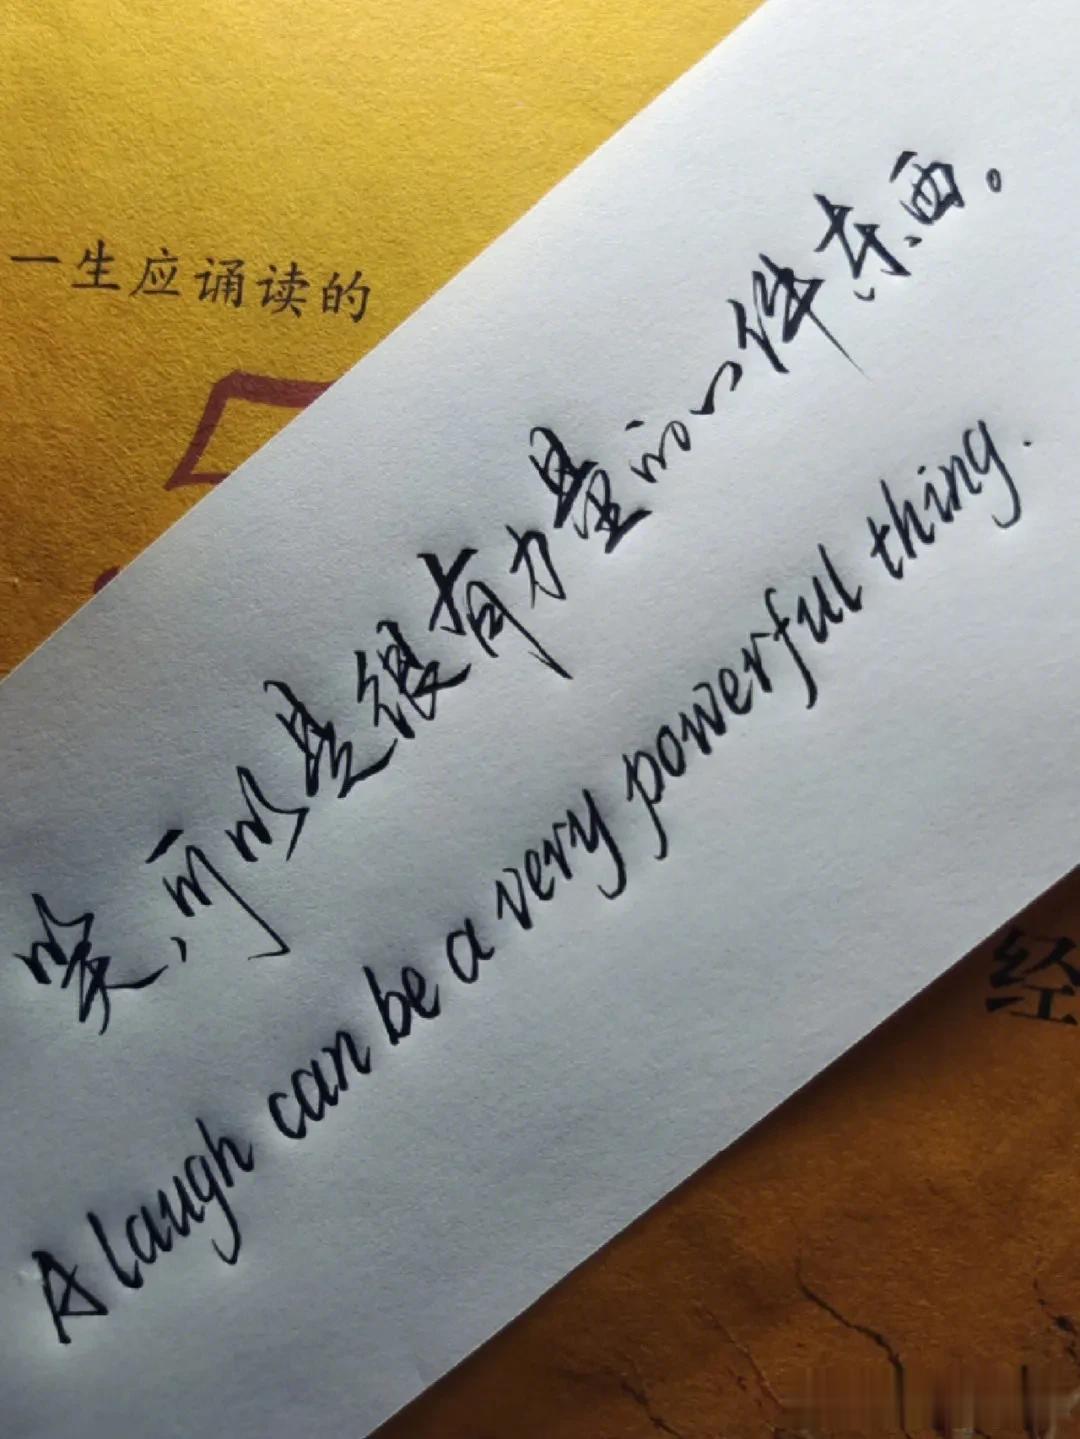 一生应诵读的
笑,可以是很有力量的一件东西。
A laugh can be a very powerful thing.
经